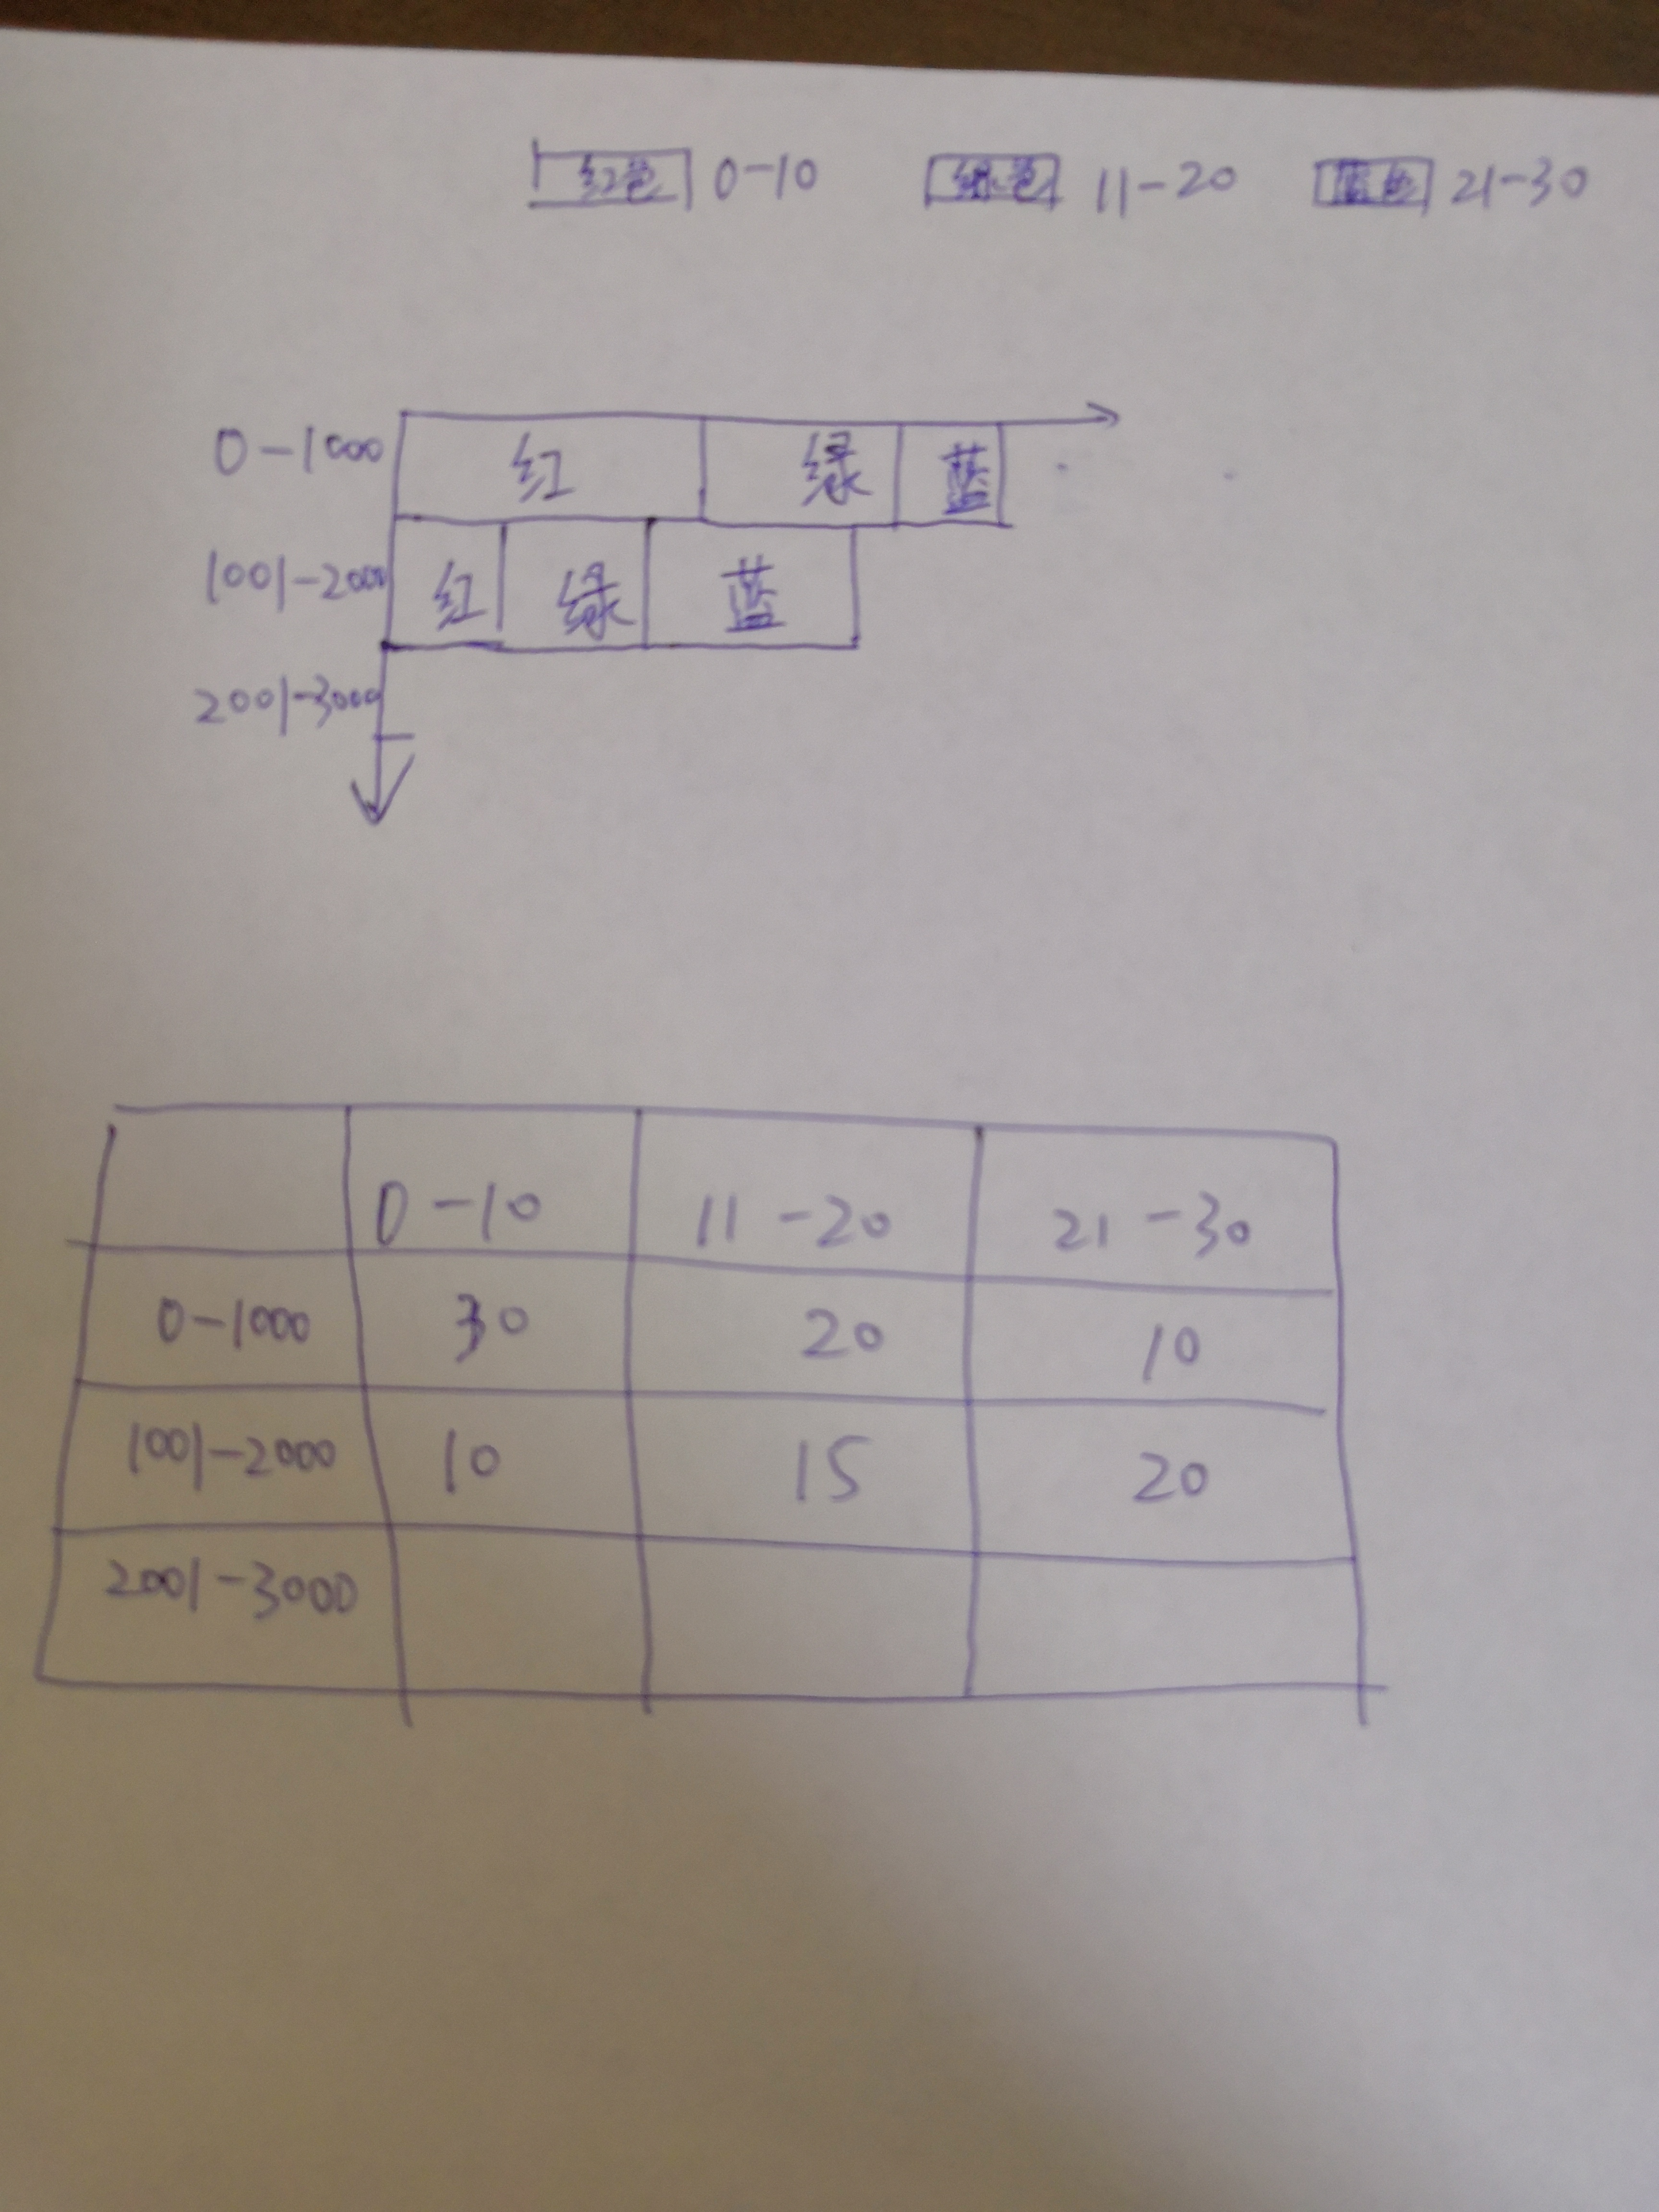 红色 0-10 绿色 11-20 蓝色 21-30
0-1000 红 绿 蓝
1001-2000 红 绿 蓝
2001-3000
0-10 11-20 21-30
0-1000 30 20 10
1001-2000 10 15 20
2001-3000